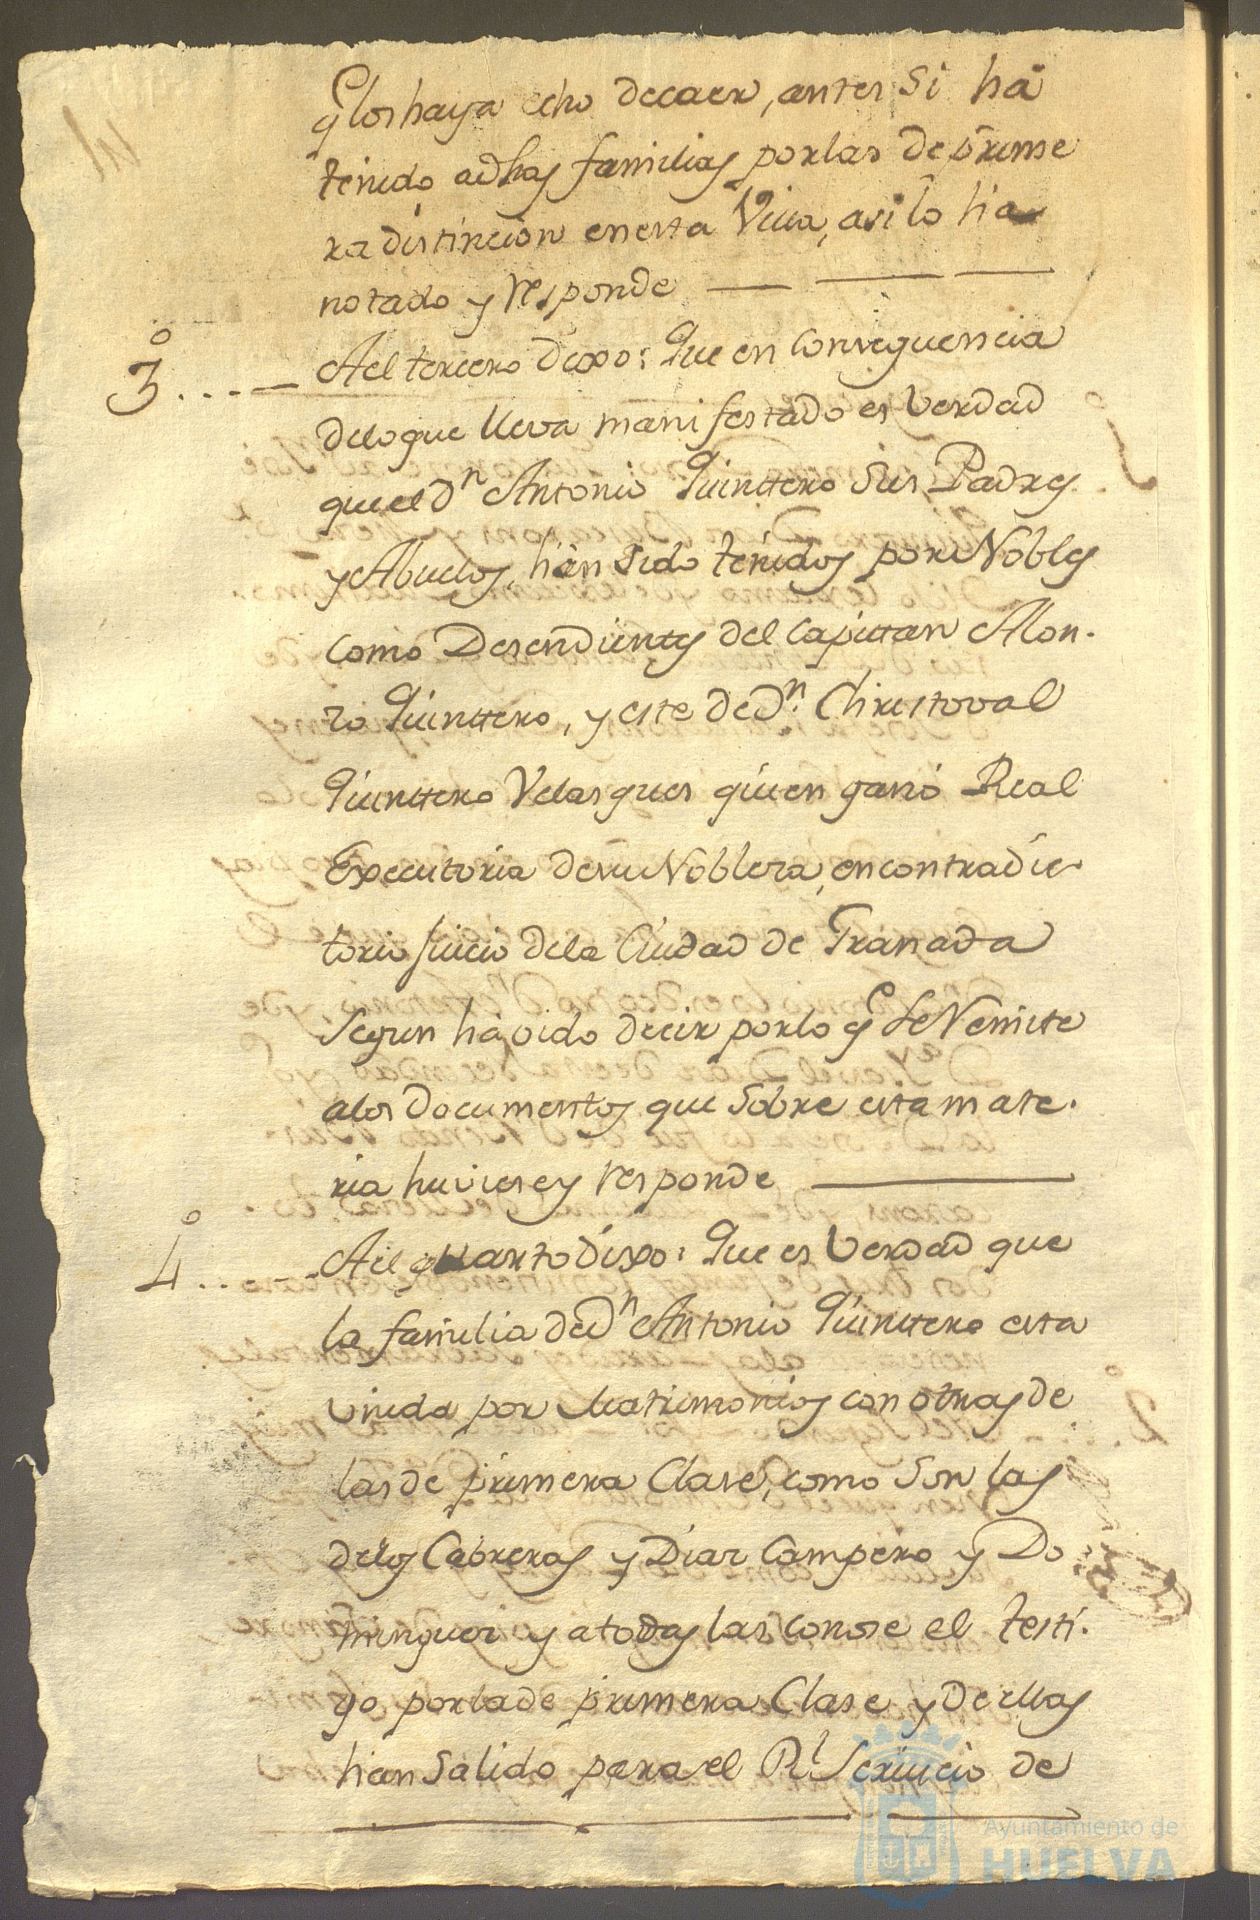 q.e los haya echo decaer, antes si ha
tenido a dhas familias por las de prime
ra distincion en esta Villa, asi lo ha
notado y responde
3.º
A el tercero dixo: Que en conseguencia
delo que lleva manifestado es verdad
que el D.n Antonio Quinttero sus Padres
y Abuelos, han sido tenidos por Nobles
como Desendientes del Capittan Alon-
zo Quinttero, y este de D.n Christoval
Quinttero Velasques quien ganó Real
Executoria de su Nobleza, en contradic-
torio Juicio dela Ciudad de Granada
segun ha oido decir por lo q.e se remite
alos Documentos que sobre esta mate-
ria huviese y responde
4.º
A el quarto dixo: Que es verdad que
la familia de D.n Antonio Quinttero esta
unida por Matrimonios con otras de
las de primera Clase, como son las
delos Cabreras y Diaz Campero y Do-
minguez y a todas las conose el testi-
go por la de primera Clase y de ellas
han salido para el R.l Servicio de
Ayuntamiento de
HUELVA